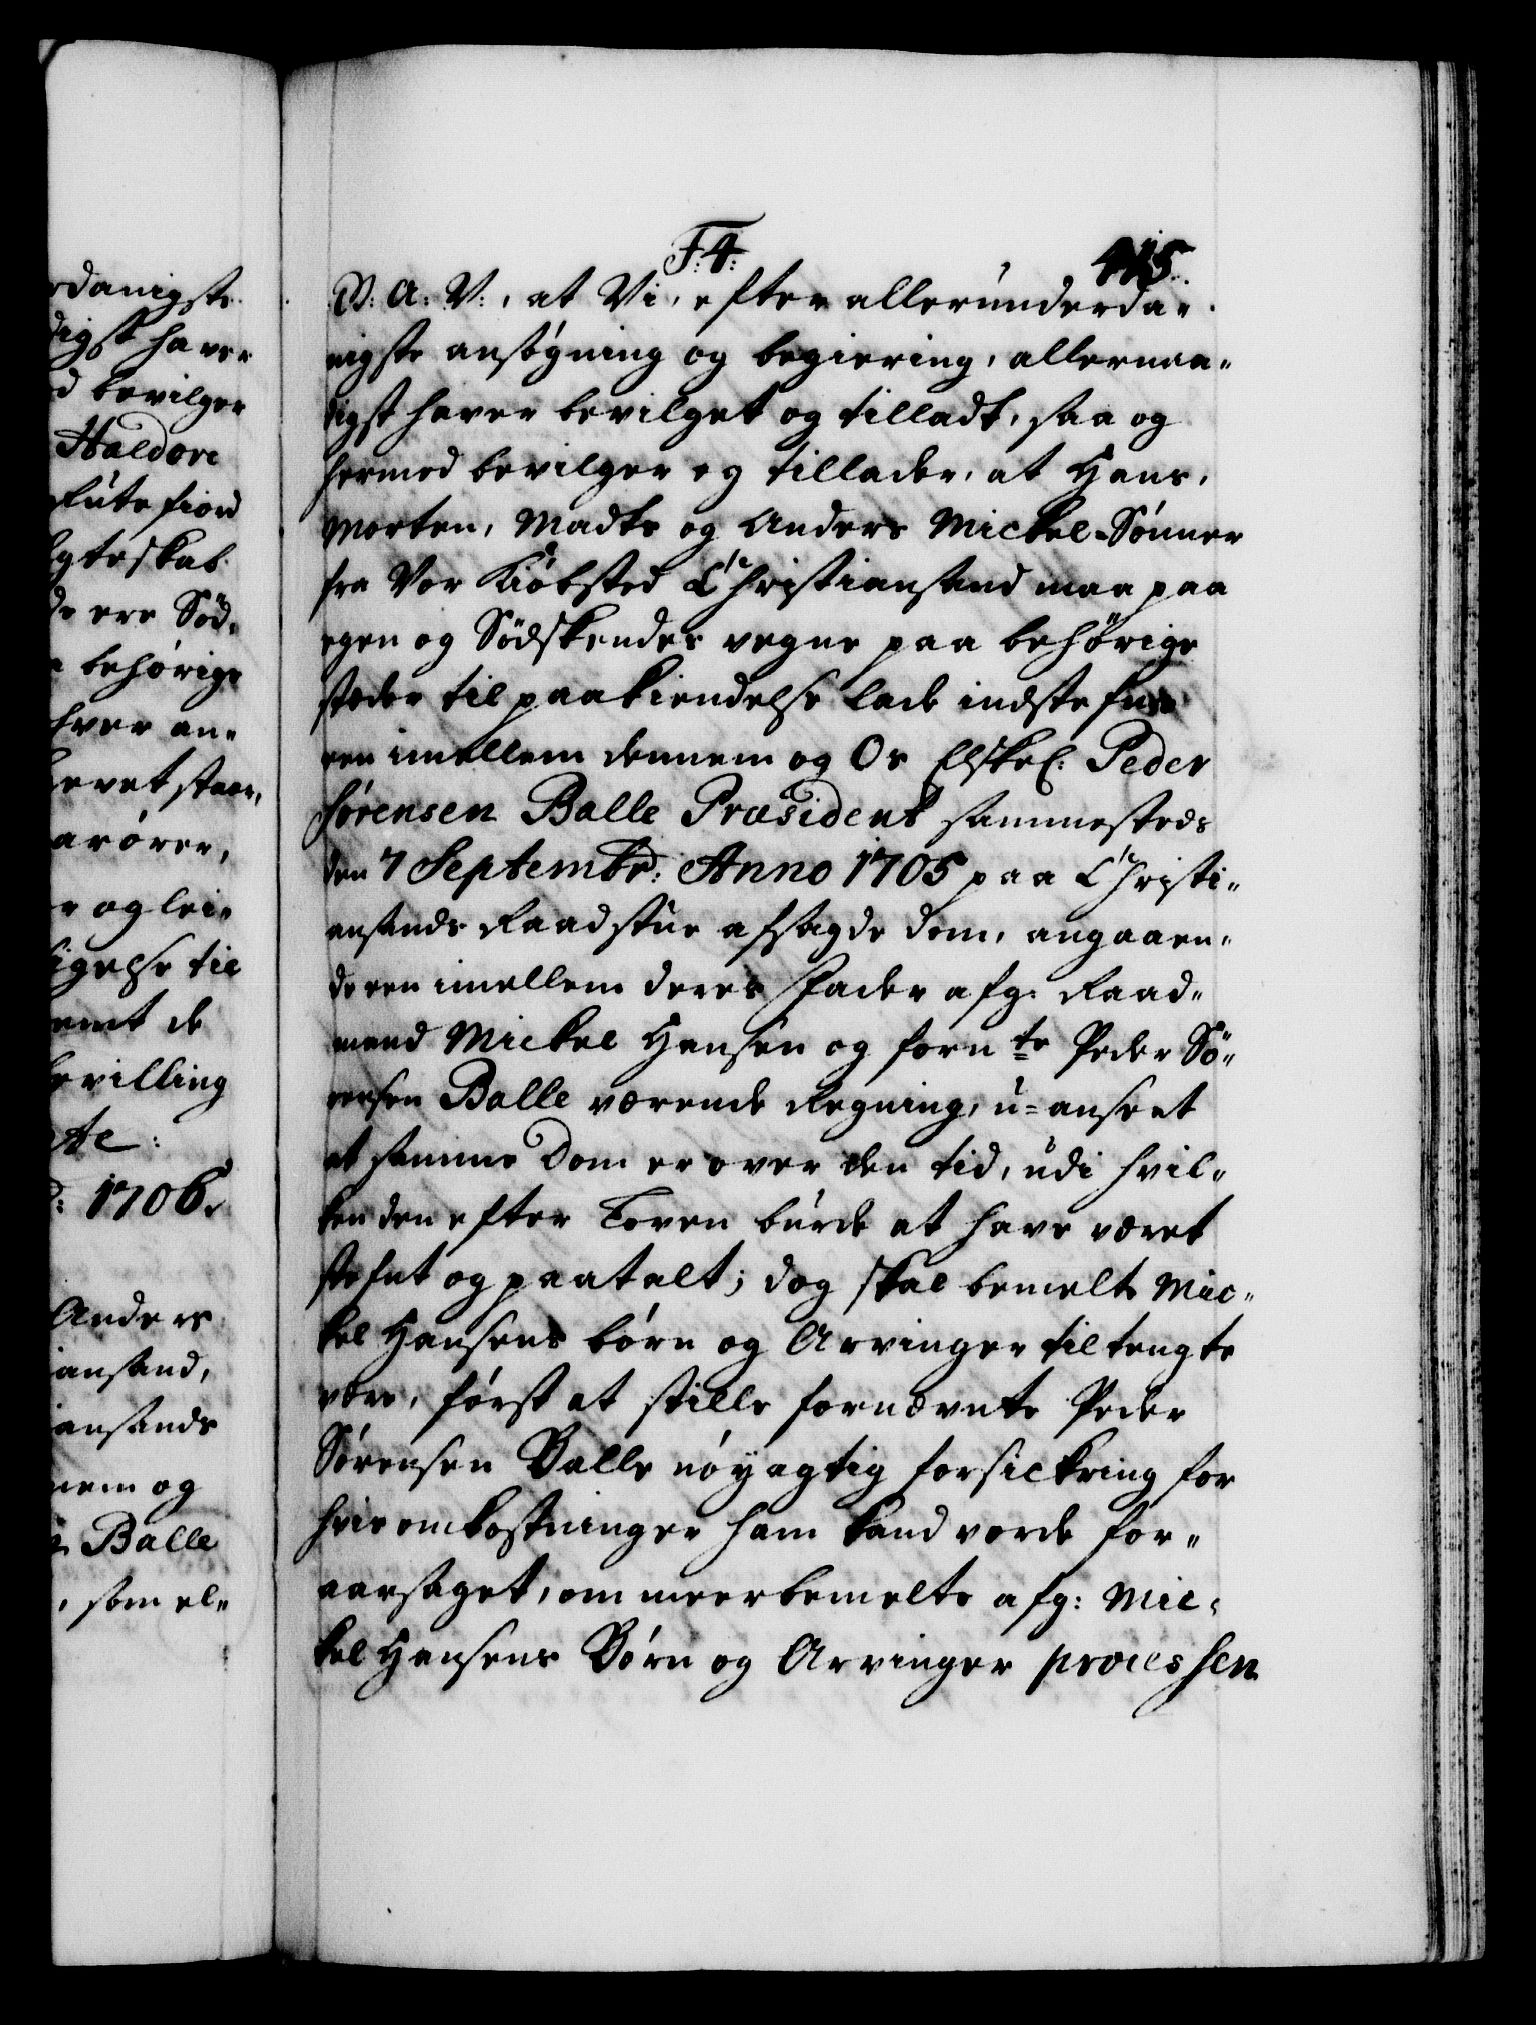 F:4:
415.
V: A: V:, at Vi, efter allerunderda-
nigste ansøgning og begiering, allernaa-
digst haver bevilget og tilladt, saa og
hermed bevilger og tillader, at Hans,
Morten, Madts og Anders Mickel-Sønner
fra Vor Kiøbsted Christiansand maa paa
egen og Sødskendes vegne paa behørige
steder til paakiendelse lade indstefne
een imellem dennem og Os Elskel: Peder
Sørensen Balle Præsident sammesteds
den 7 Septembr: Anno 1705 paa Christi-
ansands Raadstue afsagde Dom, angaaen-
de een imellem deres Fader afg: Raad-
mand Mickel Hansen og forn te Peder Sø-
rensen Balle værende Regning, u-anseet
at samme Dom er over den tid, udi hvil-
ken den efter Loven burde at have været
stefnt og paatalt; dog skal bemelte Mic-
kel Hansens børn og Arvinger tiltengte
være, først at stille fornævnte Peder
Sørensen Balle nøyagtig forsickring for
hvis omkostninger ham kand vorde for-
aarsaget, om meerbemelte afg: Mic-
kel Hansens Børn og Arvinger processen
rdanigste
digst haver
d bevilger
Haldore
gteskab
de ere Sød-
behørige
hver an-
revet staar,
arører,
r og lei-
igelse til
emt de
bevilling
te:
: 1706.
Anders
iansand,
iansands
nem og
n Balle
, som el-